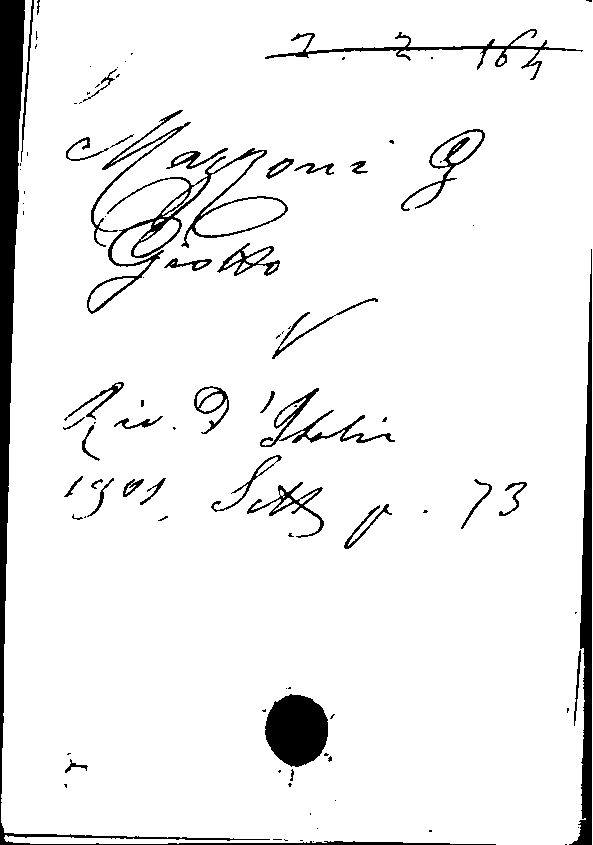 2. 2. 164
Mazzoni G
Giotto
V
Riv. D'Italia
1901, Sett p. 73